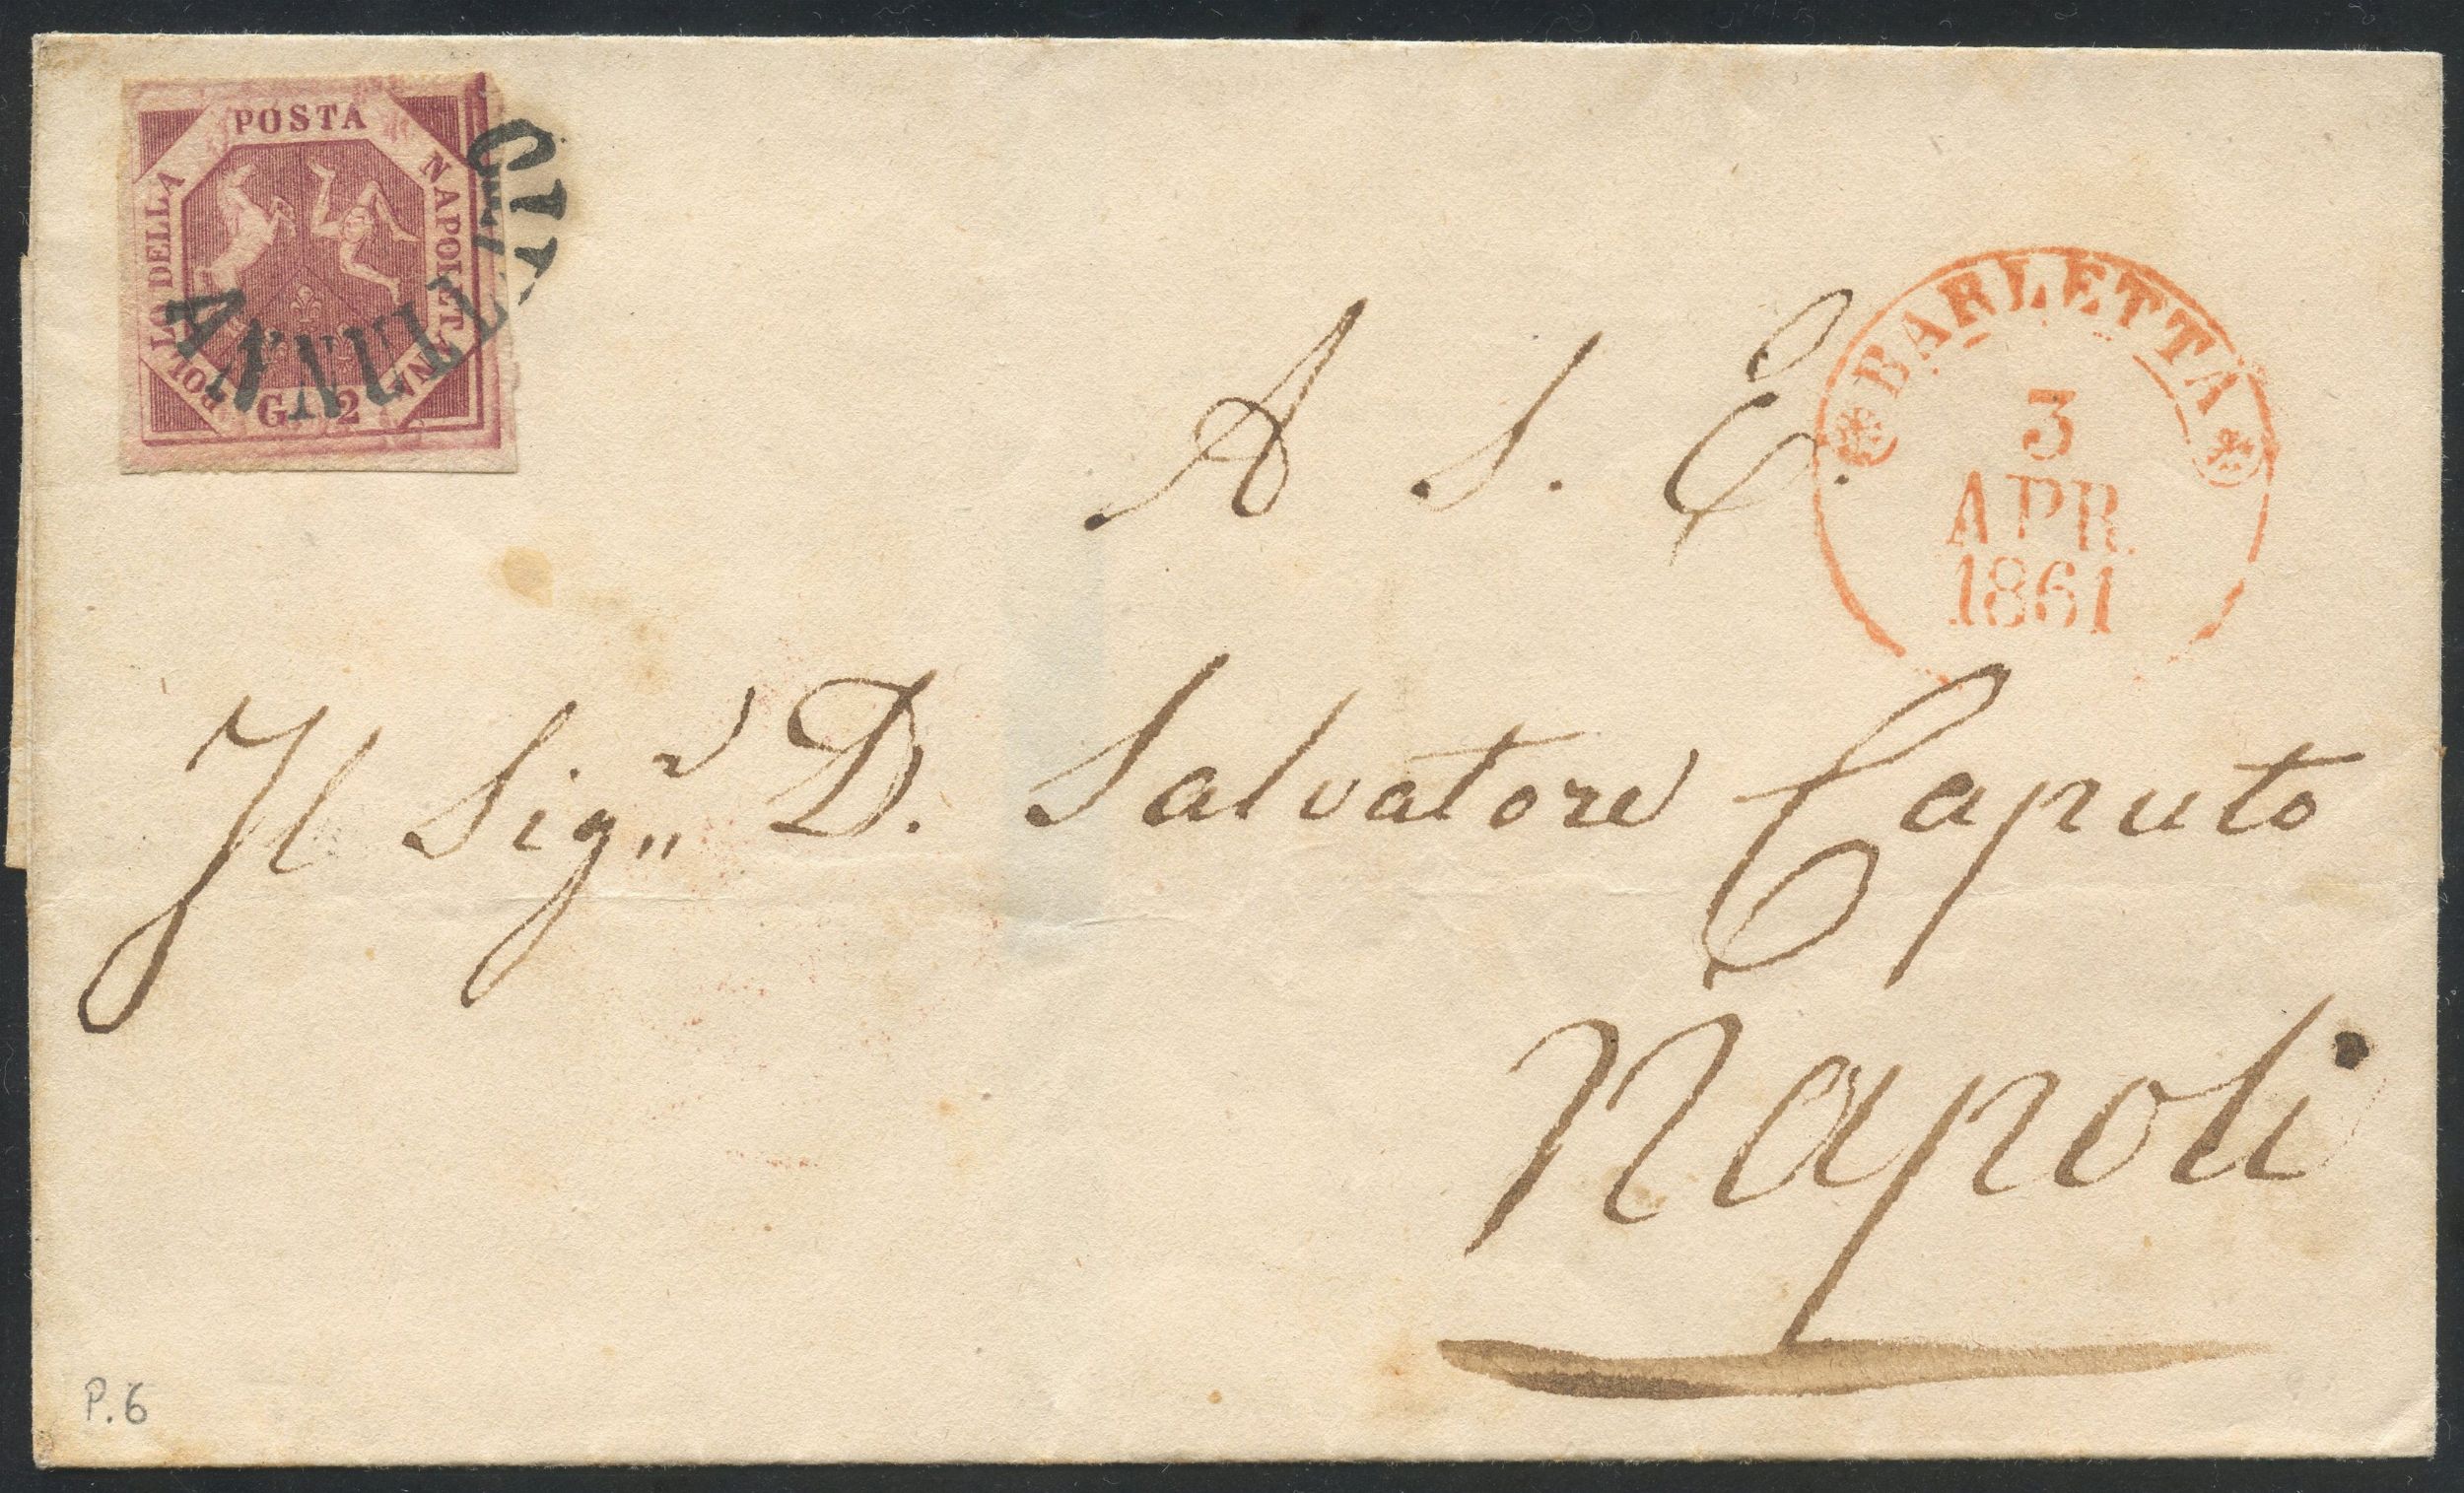 BOLLO DELLA
POSTA
NAPOLETANA
G. 2
ANNULLATO
BARLETTA
3
APR.
1861
A S. E.
Il Sig.r D. Salvatore Caputo
Napoli
P.6